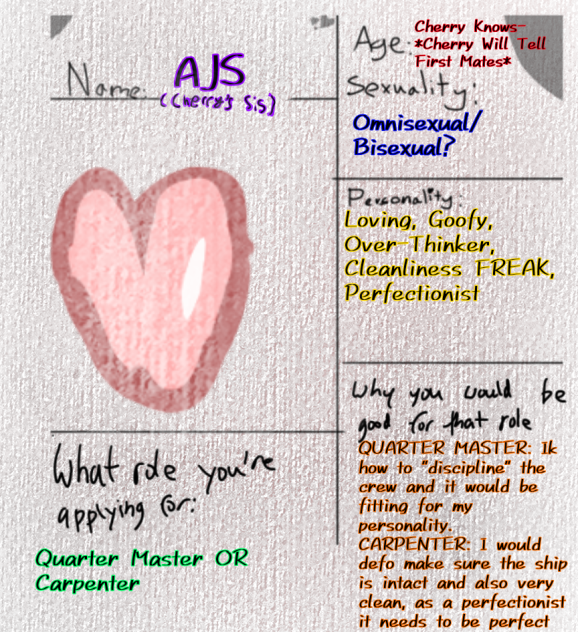 Name: AJS
(Cherry's Sis)
Age: Cherry Knows-
*Cherry Will Tell
First Mates*
Sexuality:
Omnisexual/
Bisexual?
Personality:
Loving, Goofy,
Over-Thinker,
Cleanliness FREAK,
Perfectionist
What role you're
applying for:
Quarter Master OR
Carpenter
Why you would be
good for that role
QUARTER MASTER: Ik
how to "discipline" the
crew and it would be
fitting for my
personality.
CARPENTER: I would
defo make sure the ship
is intact and also very
clean, as a perfectionist
it needs to be perfect